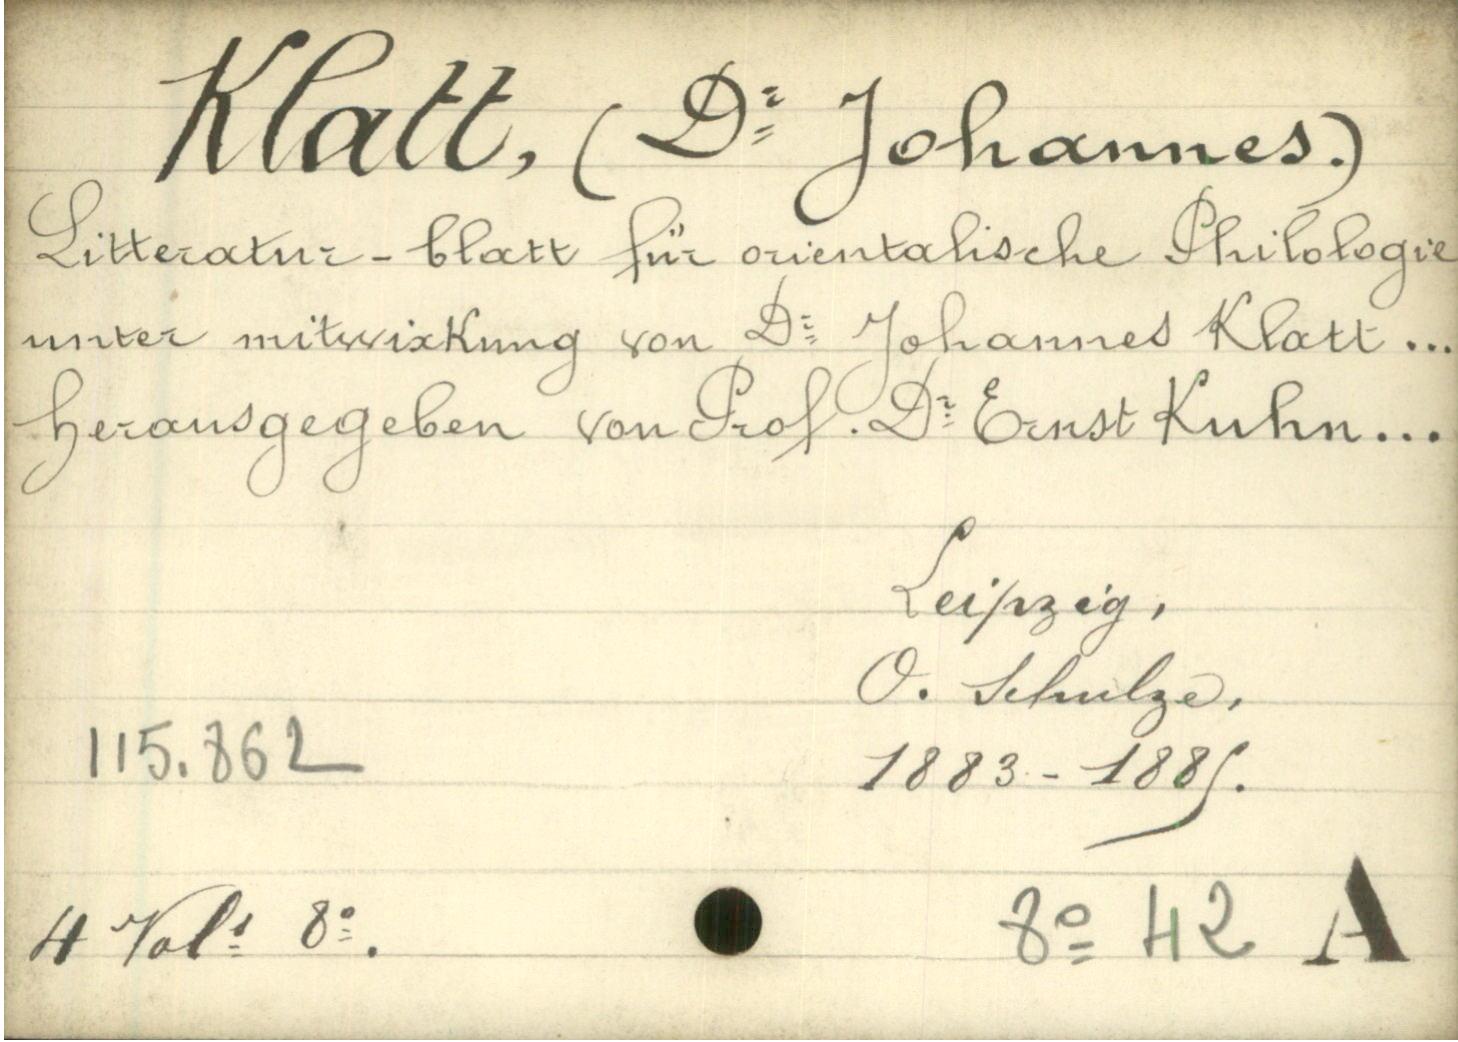 Klatt, (Dr Johannes.)
Litteratur-blatt für orientalische Philologie
unter mitwirkung von Dr Johannes Klatt...
herausgegeben von Prof. Dr Ernst Kuhn...
Leipzig,
O. Schulze,
115.862
1883-1885.
4 Vols 8o.
8o 42 A